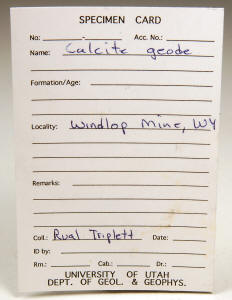 SPECIMEN CARD
No: - Acc. No.:
Name: Calcite geode
Formation/Age:
Locality: Windlop Mine, WY
Remarks:
Coll: Rual Triplett Date:
ID by:
Rm.: Cab.: Dr.:
UNIVERSITY OF UTAH
DEPT. OF GEOL. & GEOPHYS.